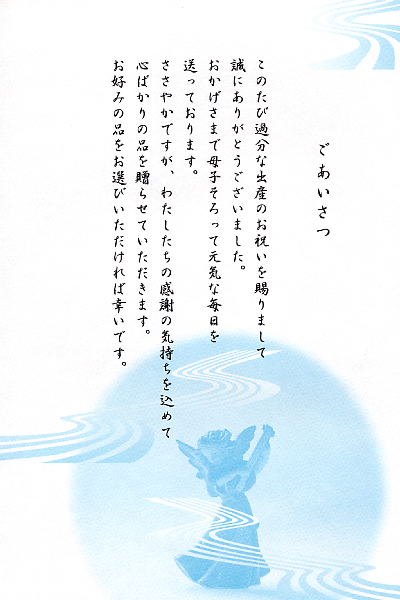 ごあいさつ
このたび過分な出産のお祝いを賜りまして
誠にありがとうございました。
おかげさまで母子そろって元気な毎日を
送っております。
ささやかですが、わたしたちの感謝の気持ちを込めて
心ばかりの品を贈らせていただきます。
お好みの品をお選びいただければ幸いです。